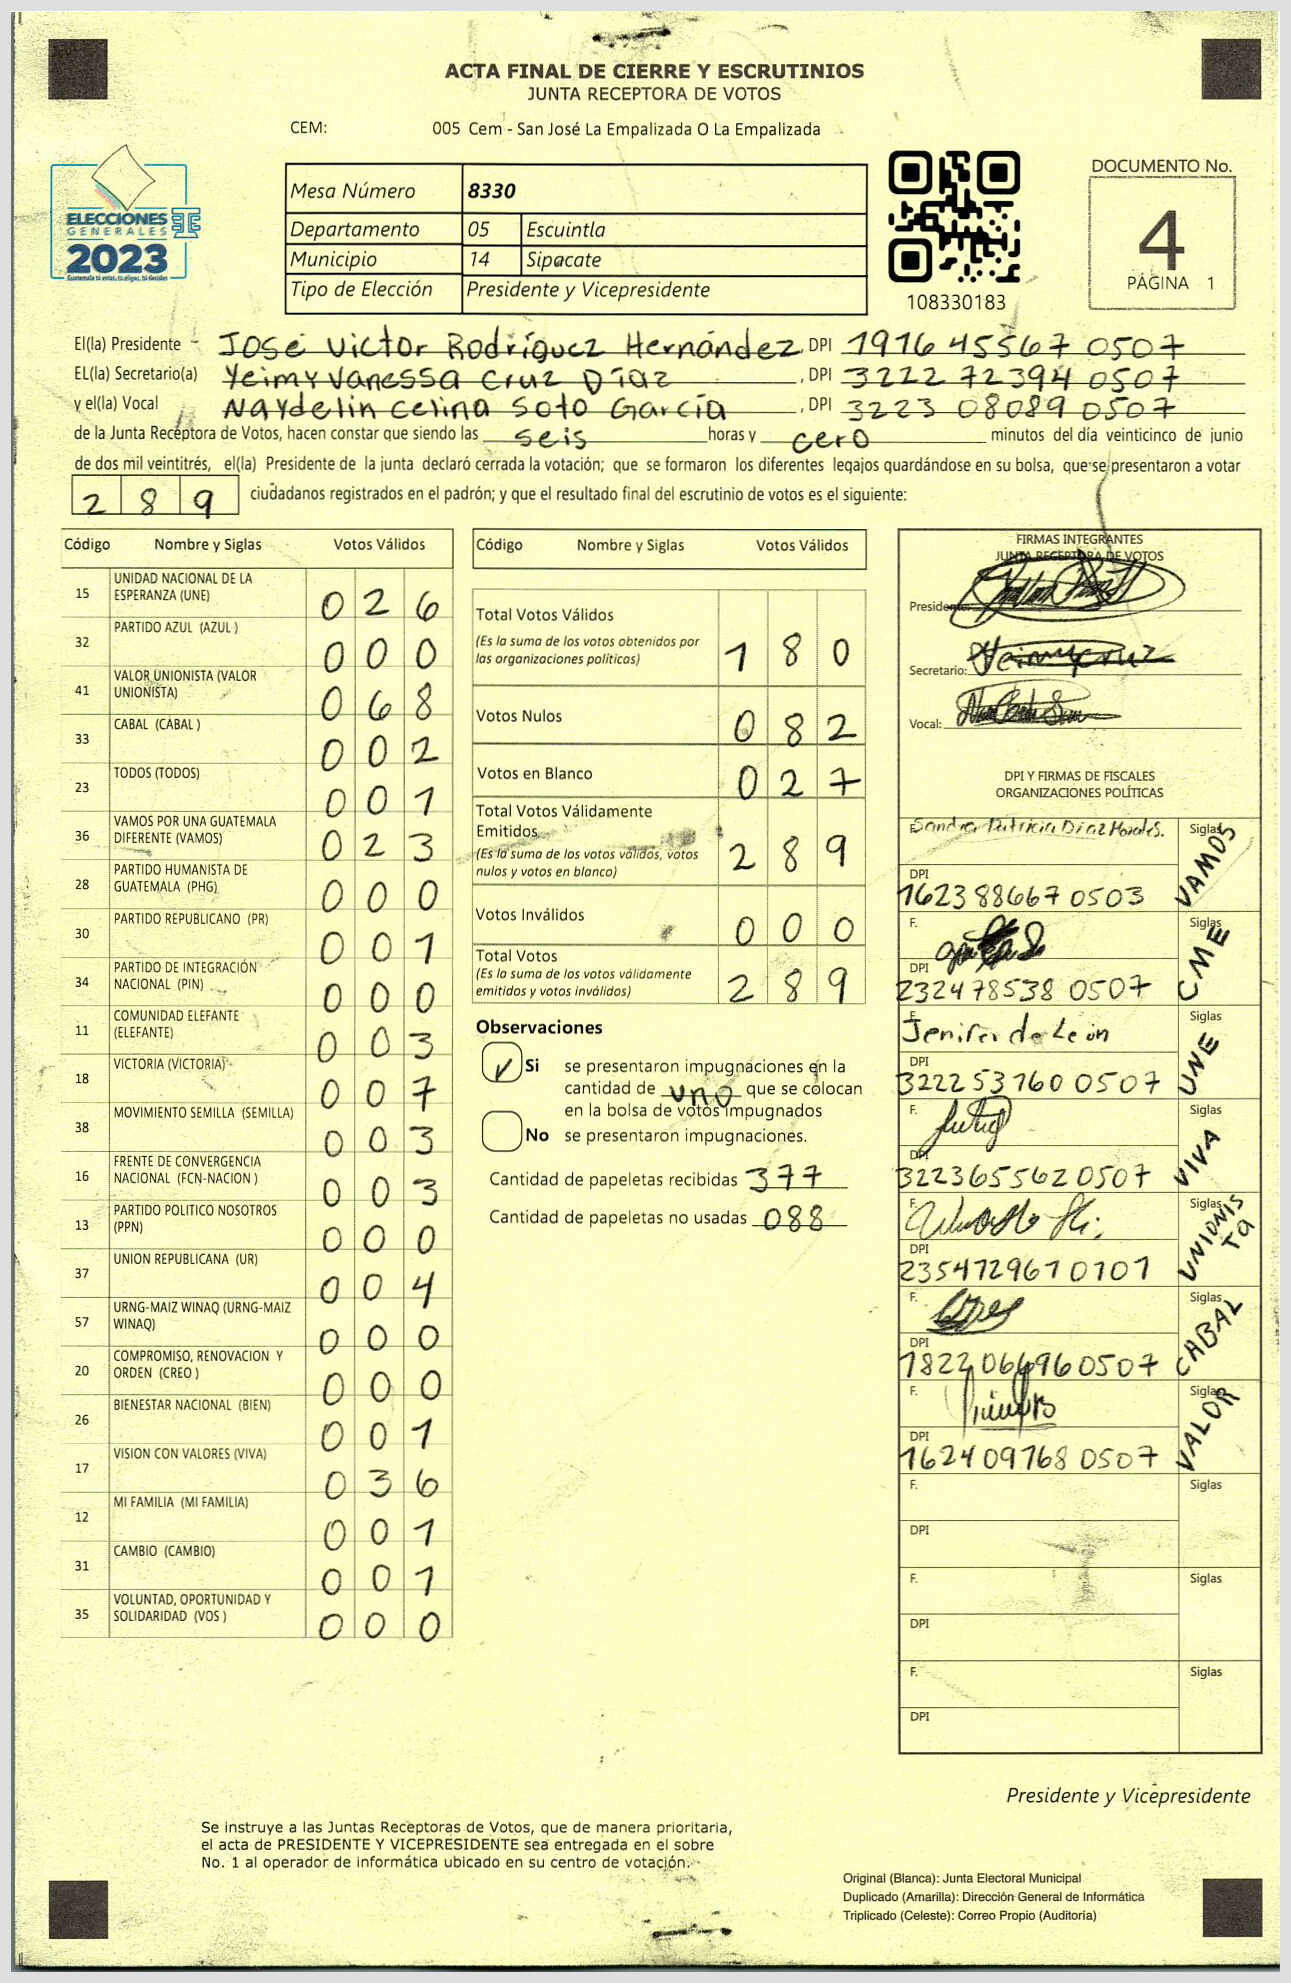 ACTA FINAL DE CIERRE Y ESCRUTINIOS
JUNTA RECEPTORA DE VOTOS
CEM: 005 Cem - San José La Empalizada O La Empalizada
ELECCIONES
GENERALES
2023
Guatemala tú votas, tú eliges, tú decides
Mesa Número 8330
Departamento 05 Escuintla
Municipio 14 Sipacate
Tipo de Elección Presidente y Vicepresidente
108330183
DOCUMENTO No.
4
PÁGINA 1
El(la) Presidente José Victor Rodríguez Hernández, DPI 1916 45567 0507
EL(la) Secretario(a) Yeimy Vanessa Cruz Díaz, DPI 3222 72394 0507
y el(la) Vocal Naydelin Celina Soto García, DPI 3223 08089 0507
de la Junta Receptora de Votos, hacen constar que siendo las seis horas y cero minutos del día veinticinco de junio
de dos mil veintitrés, el(la) Presidente de la junta declaró cerrada la votación; que se formaron los diferentes legajos guardándose en su bolsa, que se presentaron a votar
289 ciudadanos registrados en el padrón; y que el resultado final del escrutinio de votos es el siguiente:
Código Nombre y Siglas Votos Válidos
15 UNIDAD NACIONAL DE LA ESPERANZA (UNE) 026
32 PARTIDO AZUL (AZUL ) 000
41 VALOR UNIONISTA (VALOR UNIONISTA) 068
33 CABAL (CABAL ) 002
23 TODOS (TODOS) 001
36 VAMOS POR UNA GUATEMALA DIFERENTE (VAMOS) 023
28 PARTIDO HUMANISTA DE GUATEMALA (PHG) 000
30 PARTIDO REPUBLICANO (PR) 001
34 PARTIDO DE INTEGRACIÓN NACIONAL (PIN) 000
11 COMUNIDAD ELEFANTE (ELEFANTE) 003
18 VICTORIA (VICTORIA) 007
38 MOVIMIENTO SEMILLA (SEMILLA) 003
16 FRENTE DE CONVERGENCIA NACIONAL (FCN-NACION ) 003
13 PARTIDO POLITICO NOSOTROS (PPN) 000
37 UNION REPUBLICANA (UR) 004
57 URNG-MAIZ WINAQ (URNG-MAIZ WINAQ) 000
20 COMPROMISO, RENOVACION Y ORDEN (CREO ) 000
26 BIENESTAR NACIONAL (BIEN) 001
17 VISION CON VALORES (VIVA) 036
12 MI FAMILIA (MI FAMILIA) 001
31 CAMBIO (CAMBIO) 001
35 VOLUNTAD, OPORTUNIDAD Y SOLIDARIDAD (VOS ) 000
Código Nombre y Siglas Votos Válidos
Total Votos Válidos 180
(Es la suma de los votos obtenidos por
las organizaciones políticas)
Votos Nulos 082
Votos en Blanco 027
Total Votos Válidamente
Emitidos 289
(Es la suma de los votos válidos, votos
nulos y votos en blanco)
Votos Inválidos 000
Total Votos 289
(Es la suma de los votos válidamente
emitidos y votos inválidos)
Observaciones
Si se presentaron impugnaciones en la
cantidad de uno que se colocan
en la bolsa de votos impugnados
No se presentaron impugnaciones.
Cantidad de papeletas recibidas 377
Cantidad de papeletas no usadas 088
FIRMAS INTEGRANTES
JUNTA RECEPTORA DE VOTOS
Presidente:
Secretario: Yeimy Cruz
Vocal:
DPI Y FIRMAS DE FISCALES
ORGANIZACIONES POLÍTICAS
F. Sandra Patricia Díaz Morales. Siglas VAMOS
DPI 1623 88667 0503
F. Siglas CME
DPI 2324 78538 0507
F. Jenifer de León Siglas UNE
DPI 3222 53760 0507
F. Siglas VIVA
DPI 3223655620507
F. Siglas UNIONISTA
DPI 2354729610101
F. Siglas CABAL
DPI 1822 06696 0507
F. Siglas VALOR
DPI 1624 09768 0507
F. Siglas
DPI
F. Siglas
DPI
F. Siglas
DPI
Presidente y Vicepresidente
Se instruye a las Juntas Receptoras de Votos, que de manera prioritaria,
el acta de PRESIDENTE Y VICEPRESIDENTE sea entregada en el sobre
No. 1 al operador de informática ubicado en su centro de votación.
Original (Blanca): Junta Electoral Municipal
Duplicado (Amarilla): Dirección General de Informática
Triplicado (Celeste): Correo Propio (Auditoría)